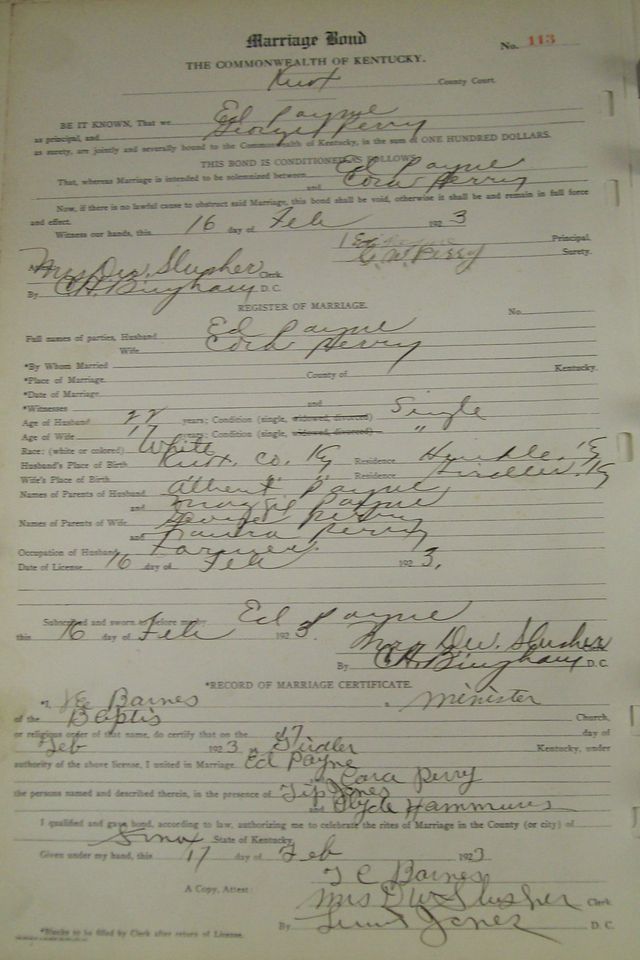 Marriage Bond
No. 113
THE COMMONWEALTH OF KENTUCKY.
Knox County Court.
BE IT KNOWN, That we Ed Payne
as principal, and George Perry
as surety, are jointly and severally bound to the Commonwealth of Kentucky, in the sum of ONE HUNDRED DOLLARS.
THIS BOND IS CONDITIONED AS FOLLOWS:
That, whereas Marriage is intended to be solemnized between Ed Payne
and Cora Perry
Now, if there is no lawful cause to obstruct said Marriage, this bond shall be void, otherwise it shall be and remain in full force
and effect.
Witness our hands, this 16 day of Feb 1923
Principal.
G.W. Perry Surety.
Mrs D.W. Slusher Clerk.
By C.H. Bingham D. C.
REGISTER OF MARRIAGE.
No.
Full names of parties, Husband Ed Payne
Wife Cora Perry
*By Whom Married
*Place of Marriage County of Kentucky.
*Date of Marriage
*Witnesses and
Age of Husband 22 years; Condition (single, widowed, divorced) Single
Age of Wife 17 years; Condition (single, widowed, divorced) "
Race: (white or colored) White
Husband's Place of Birth Knox. Co. Ky Residence Ky
Wife's Place of Birth " " " Residence Girdler. Ky
Names of Parents of Husband Albert Payne
and Maggie Payne
Names of Parents of Wife George Perry
and Laura Perry
Occupation of Husband Farmer.
Date of License 16 day of Feb 1923.
Subscribed and sworn to before me by Ed Payne
this 16 day of Feb 1923.
Mrs D.W. Slusher Clerk
By C.H. Bingham D. C.
*RECORD OF MARRIAGE CERTIFICATE.
*I, Barnes, a minister
of the Baptis Church,
or religious order of that name, do certify that on the 17 day of
Feb 1923 at Girdler Kentucky, under
authority of the above license, I united in Marriage Ed Payne
Cora Perry
the persons named and described therein, in the presence of Tip Jones
and Clyde Hammons
I qualified and gave bond, according to law, authorizing me to celebrate the rites of Marriage in the County (or city) of
Knox State of Kentucky.
Given under my hand, this 17 day of Feb 1923
Barnes
A Copy, Attest: Mrs D W Slusher Clerk
By Jones D. C.
*Blanks to be filled by Clerk after return of License.